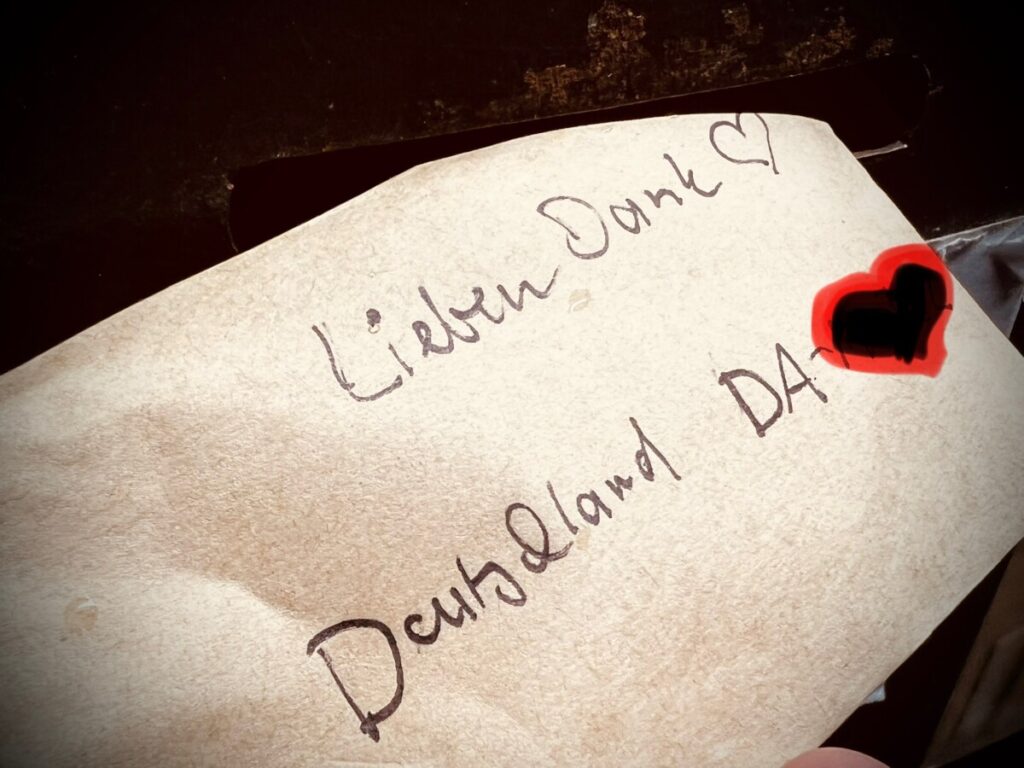 Lieben Dank ♡
Deutschland DA-